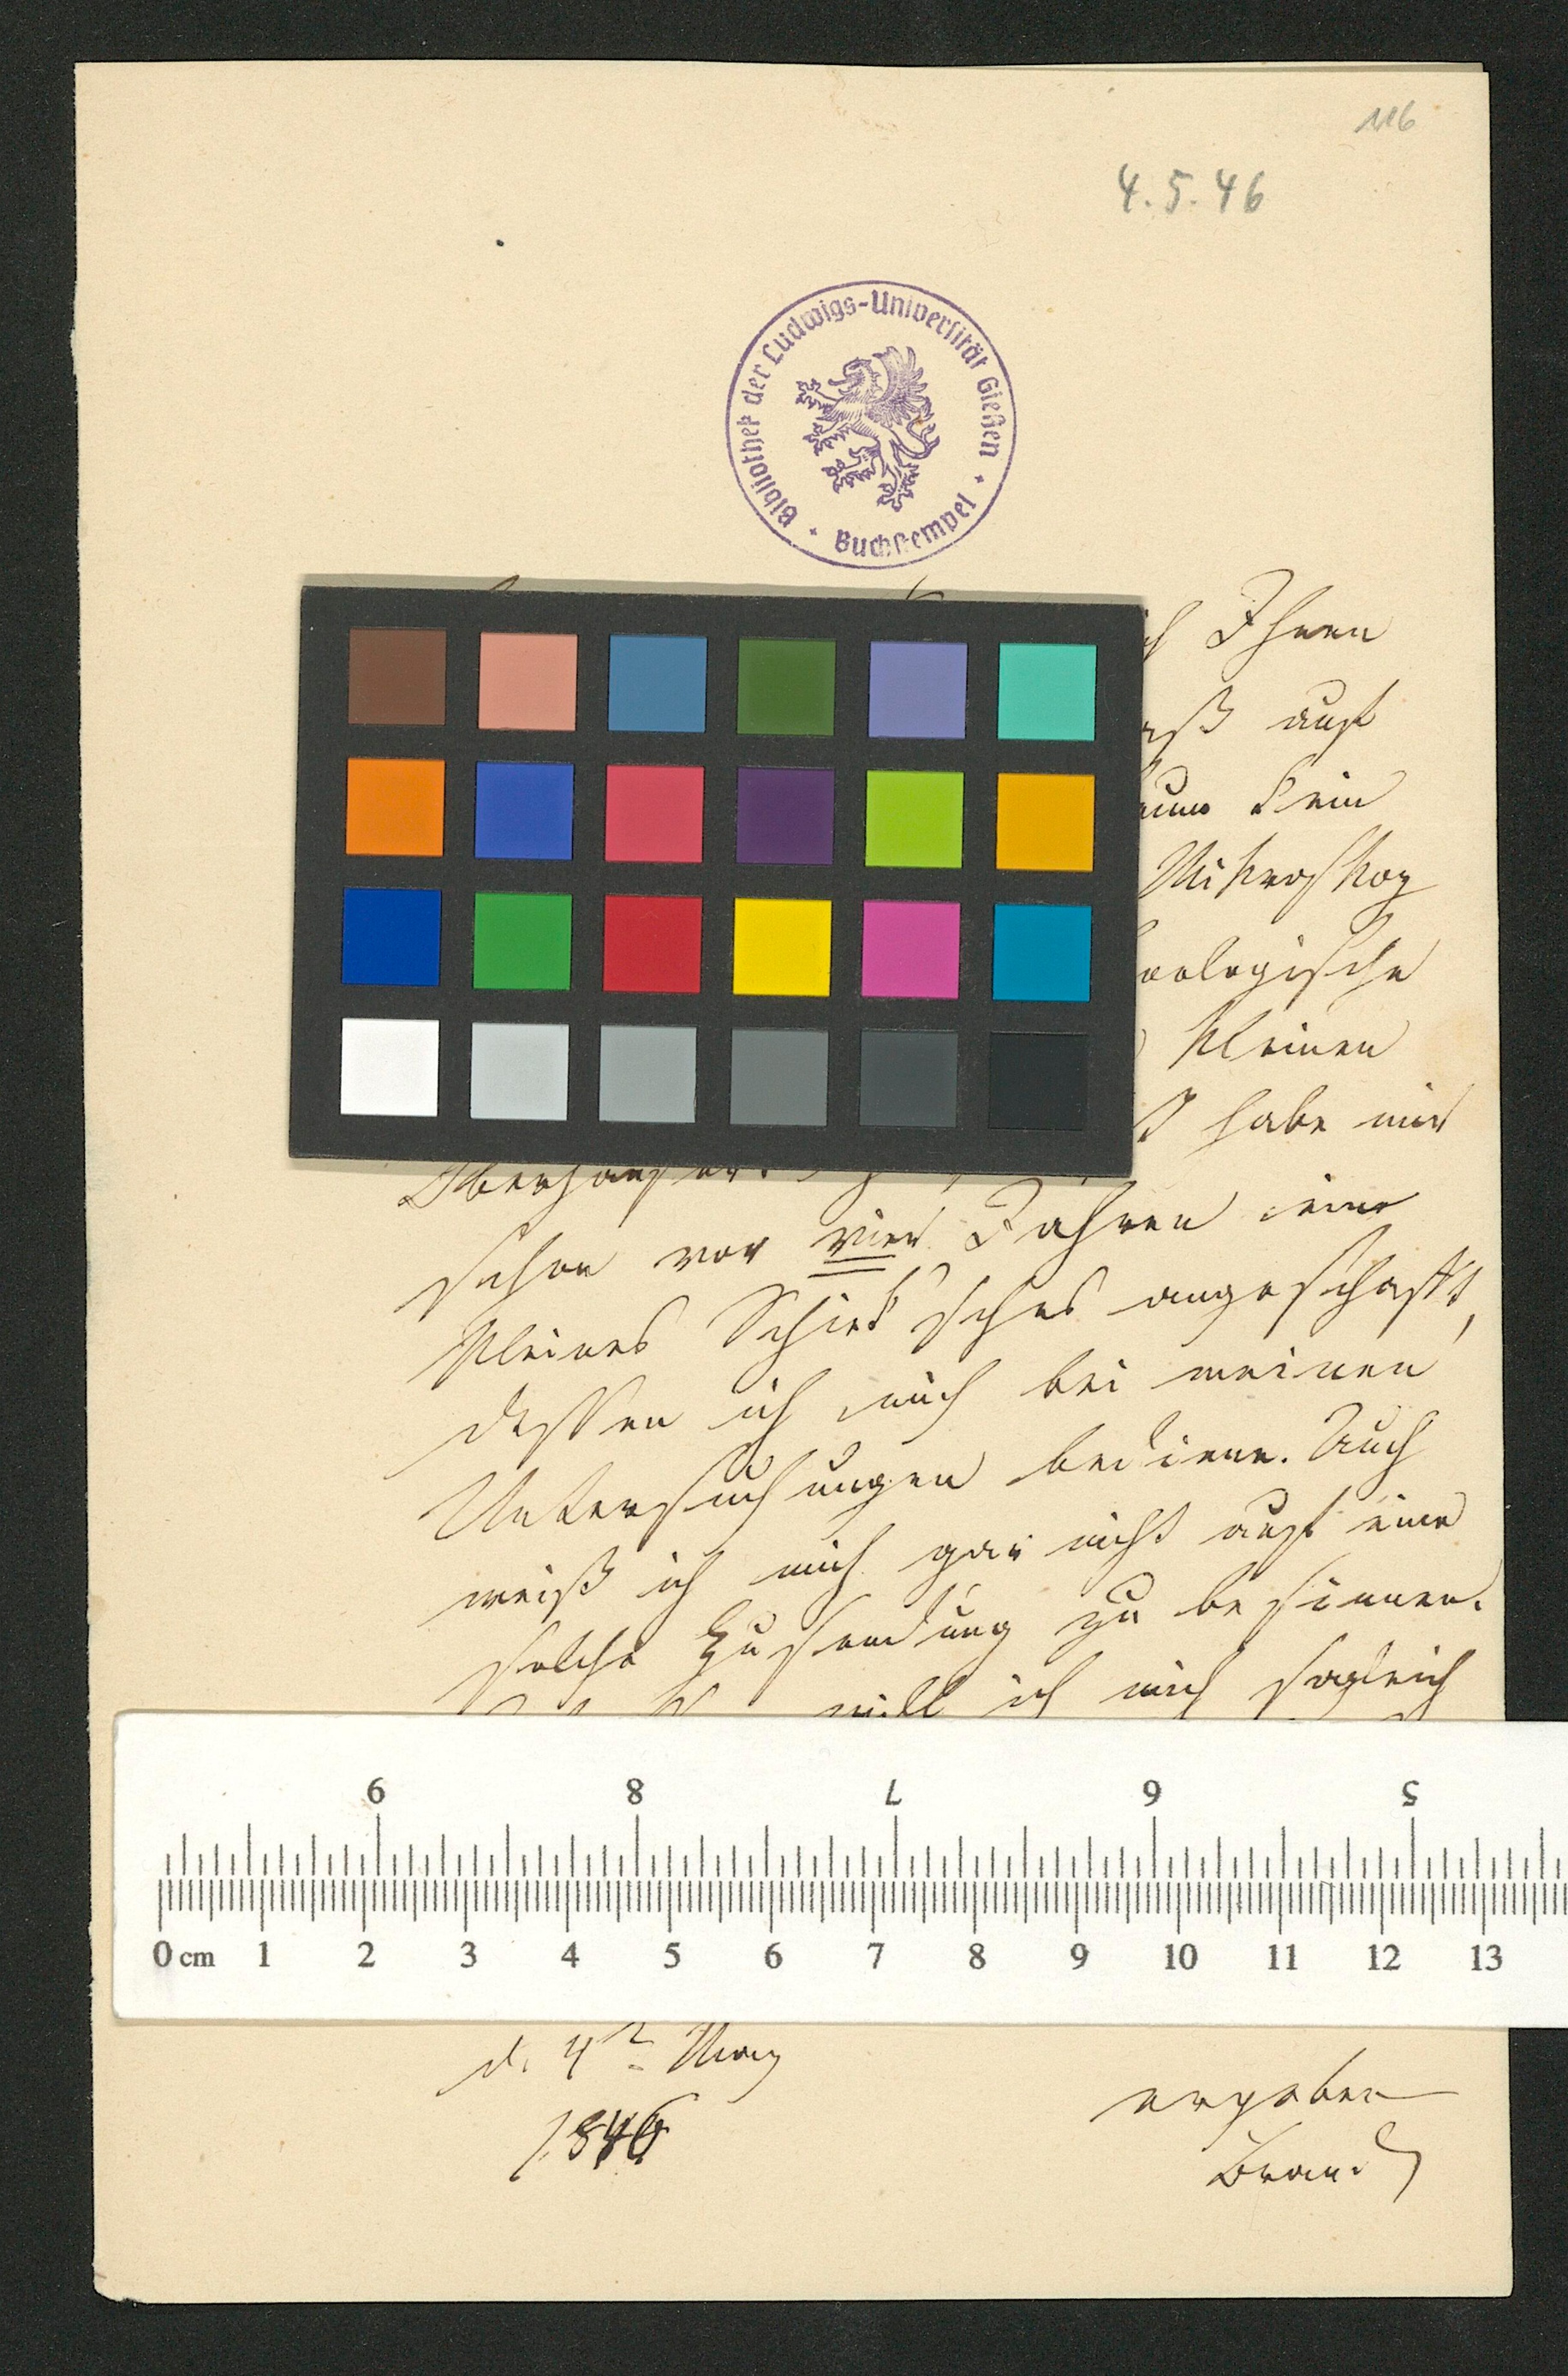 116
4.5.46
Bibliothek der Ludwigs-Universität Gießen
Buchstempel
ich Ihnen
daß auf
kein
Mikroskop
zoologische
kleinen
habe mir
Oberhäuser.
schon vor vier Jahren ein
kleines Schiek'sches angeschafft,
dessen ich mich bei meinen
Untersuchungen bediene. Auch
weiß ich mich gar nicht auf eine
solche Zusendung zu besinnen.
will ich mich sogleich
9 8 7 6 5
0 cm 1 2 3 4 5 6 7 8 9 10 11 12 13
d. 4t May
1846
ergeben
Brandt